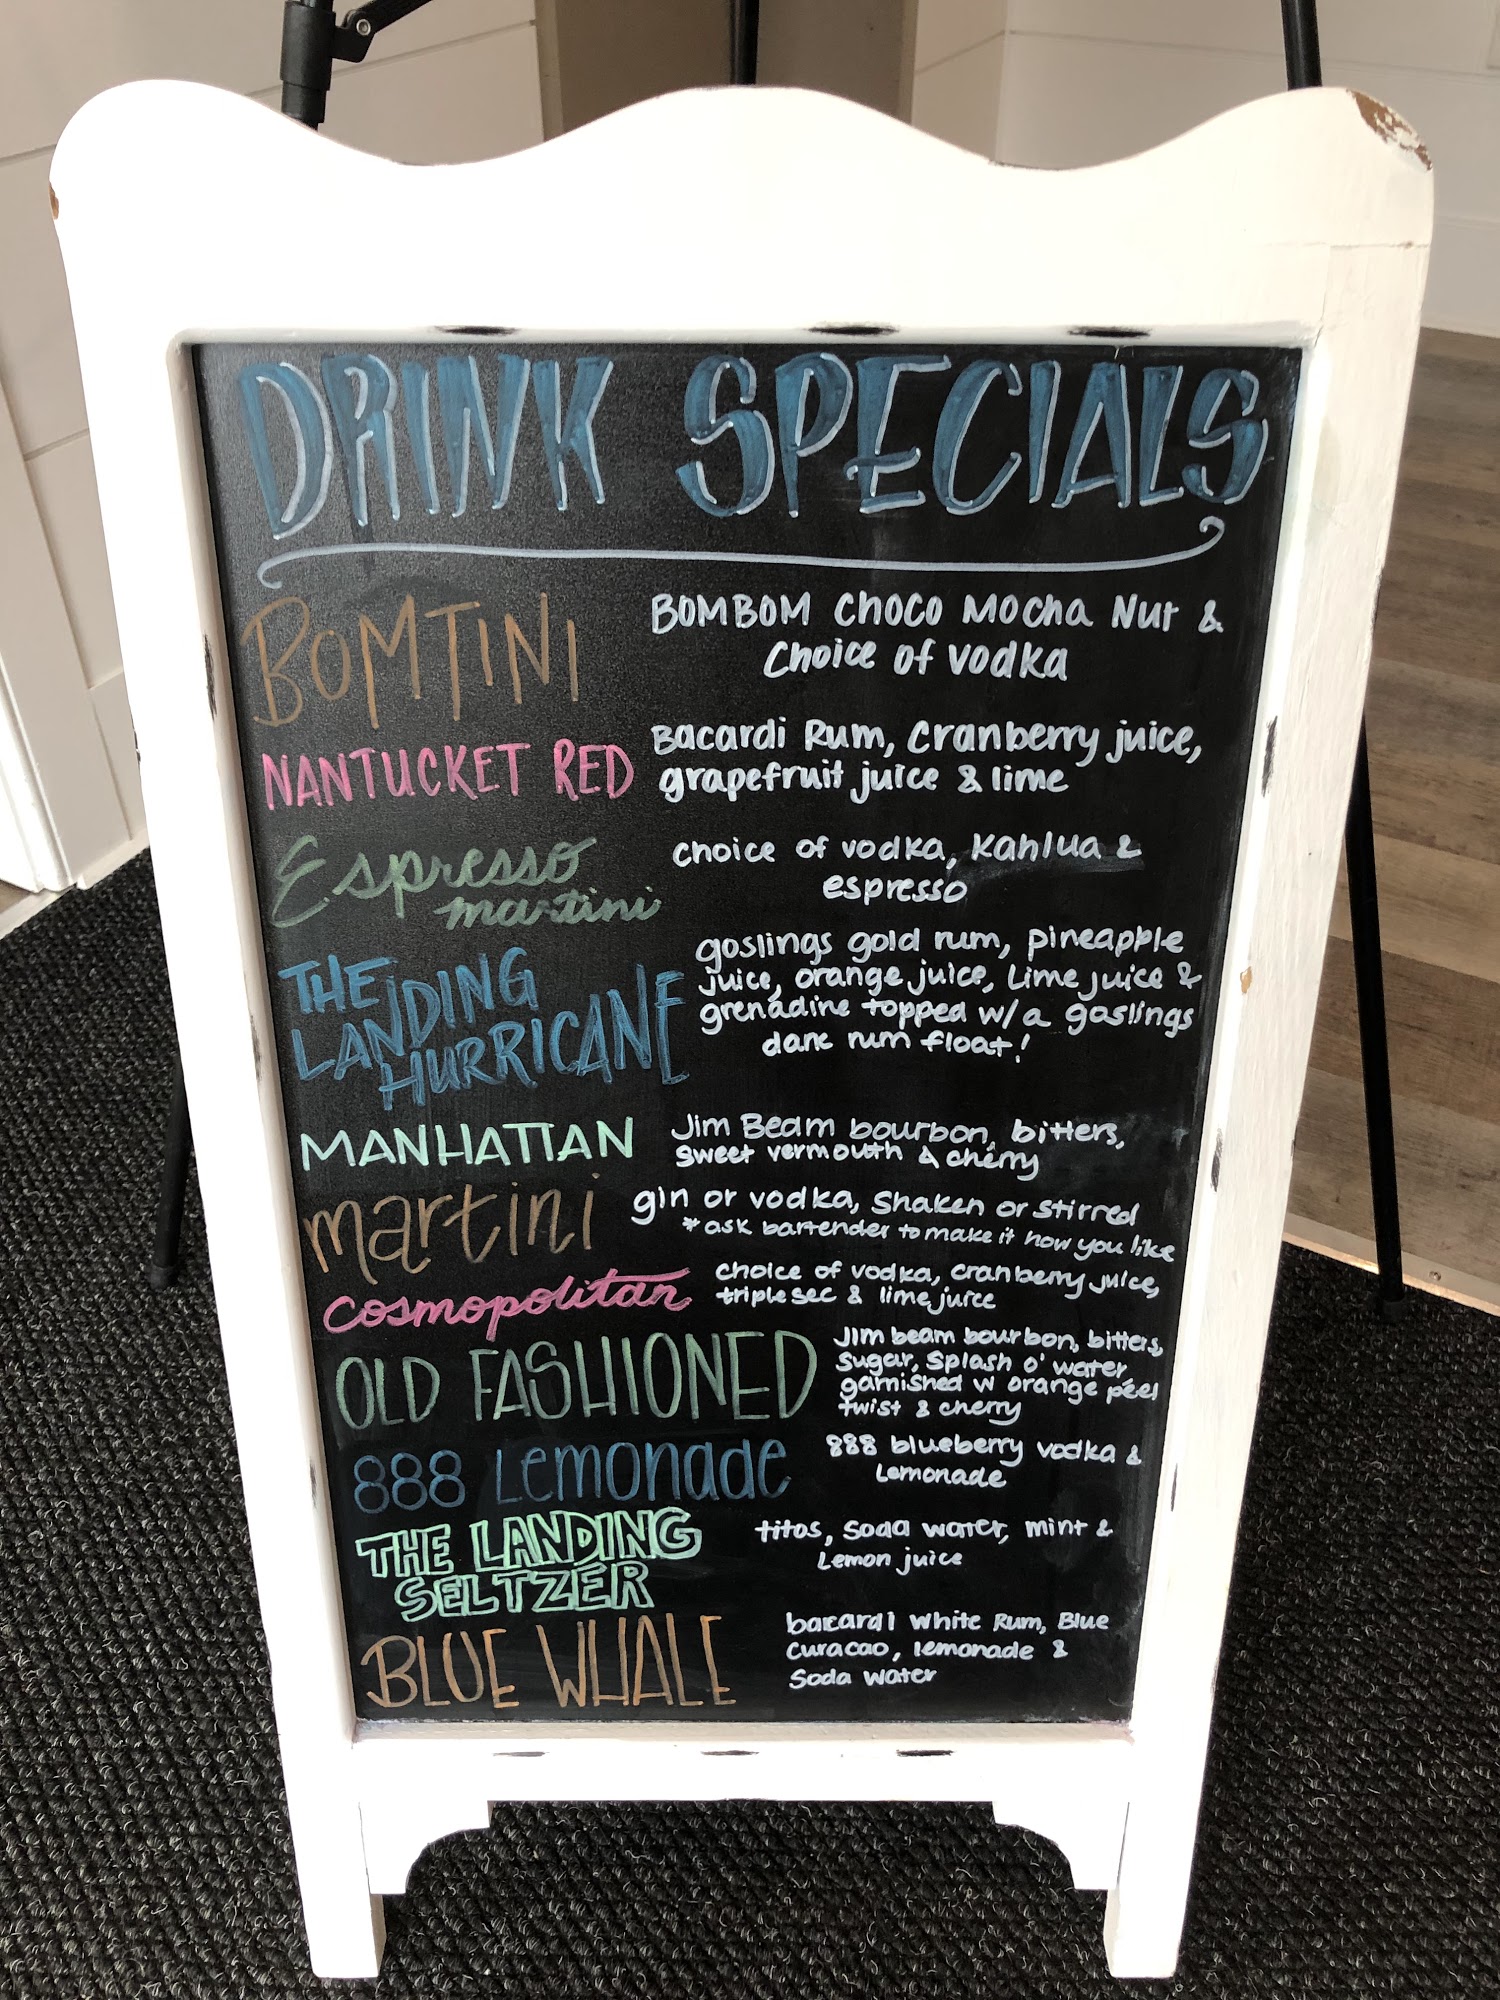 DRINK SPECIALS
BOMTINI
BOMBOM CHOCO MOCHA NUT &
Choice of vodka
NANTUCKET RED
Bacardi Rum, Cranberry juice,
grapefruit juice & lime
Espresso
martini
choice of vodka, Kahlua &
espresso
THE
LANDING
HURRICANE
goslings gold rum, pineapple
juice, orange juice, Lime juice &
grenadine topped w/ a goslings
dark rum float!
MANHATTAN
Jim Beam bourbon, bitters,
sweet vermouth & cherry
martini
gin or vodka, Shaken or stirred
* ask bartender to make it how you like
Cosmopolitan
choice of vodka, cranberry juice,
triple sec & lime juice
OLD FASHIONED
Jim beam bourbon, bitters,
sugar, splash o' water
garnished w orange peel
twist & cherry
888 Lemonade
888 blueberry vodka &
Lemonade
THE LANDING
SELTZER
titos, soda water, mint &
Lemon juice
BLUE WHALE
bacardi White Rum, Blue
Curacao, lemonade &
Soda water